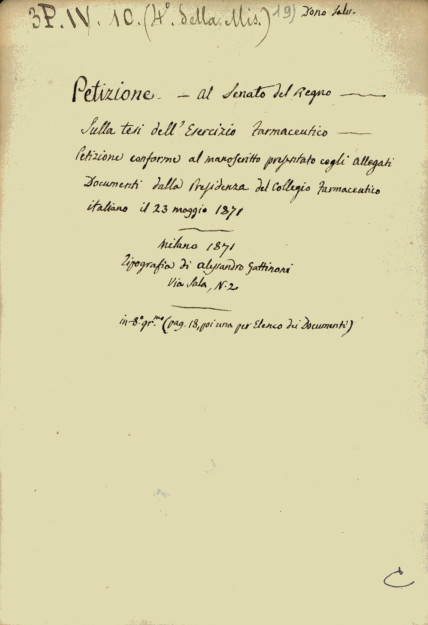 3P.IV. 10. (4º. della Mis.) 19) Dono Salv.
Petizione - al Senato del Regno
Sulla tesi dell'Esercizio Farmaceutico
Petizione conforme al manoscritto presentato cogli allegati
Documenti dalla Presidenza del Collegio Farmaceutico
italiano il 23 maggio 1871
Milano 1871
Tipografia di Alessandro Gattinoni
Via Sala, N. 2
in-8º gr.mo (pag. 18, poi una per Elenco dei Documenti)
C